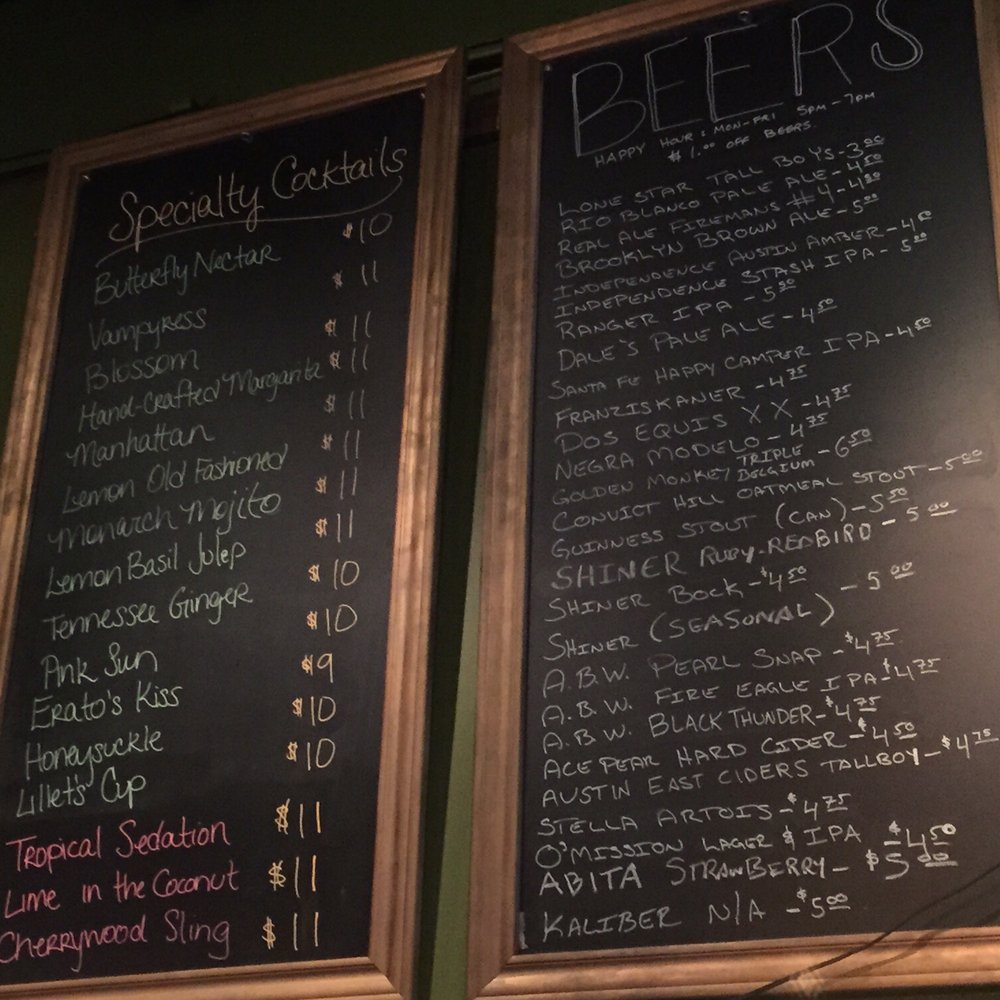 Specialty Cocktails
Butterfly Nectar $10
Vampyress $11
Blossom $11
Hand-crafted Margarita $11
Manhattan $11
Lemon Old Fashioned $11
Monarch Mojito $11
Lemon Basil Julep $11
Tennessee Ginger $10
Pink Sun $10
Erato's Kiss $9
Honeysuckle $10
Lillet's Cup $10
Tropical Sedation $11
Lime in the Coconut $11
Cherrywood Sling $11
BEERS
HAPPY HOUR: MON-FRI 5PM-7PM
$1.00 OFF BEERS.
LONE STAR TALL BOYS-3.00
RIO BLANCO PALE ALE-4.50
REAL ALE FIREMANS #4-4.50
BROOKLYN BROWN ALE-5.00
INDEPENDENCE AUSTIN AMBER-
INDEPENDENCE STASH IPA-5.00
RANGER IPA-5.00
DALE'S PALE ALE-4.50
SANTA FE HAPPY CAMPER IPA-4.50
FRANZISKANER-4.75
DOS EQUIS XX-4.75
NEGRA MODELO-4.75
GOLDEN MONKEY TRIPLE BELGIUM-6.50
CONVICT HILL OATMEAL STOUT-5.00
GUINNESS STOUT (CAN)-5.50
SHINER RUBY.REDBIRD-5.00
SHINER BOCK-$4.50
SHINER (SEASONAL)-5.00
A.B.W. PEARL SNAP-$4.75
A.B.W. FIRE EAGLE IPA-$4.75
A.B.W. BLACK THUNDER-$4.75
ACE PEAR HARD CIDER-$4.50
AUSTIN EAST CIDERS TALLBOY-$4.75
STELLA ARTOIS-$4.75
O'MISSION LAGER & IPA-$4.50
ABITA STRAWBERRY-$5.00
KALIBER N/A-$5.00